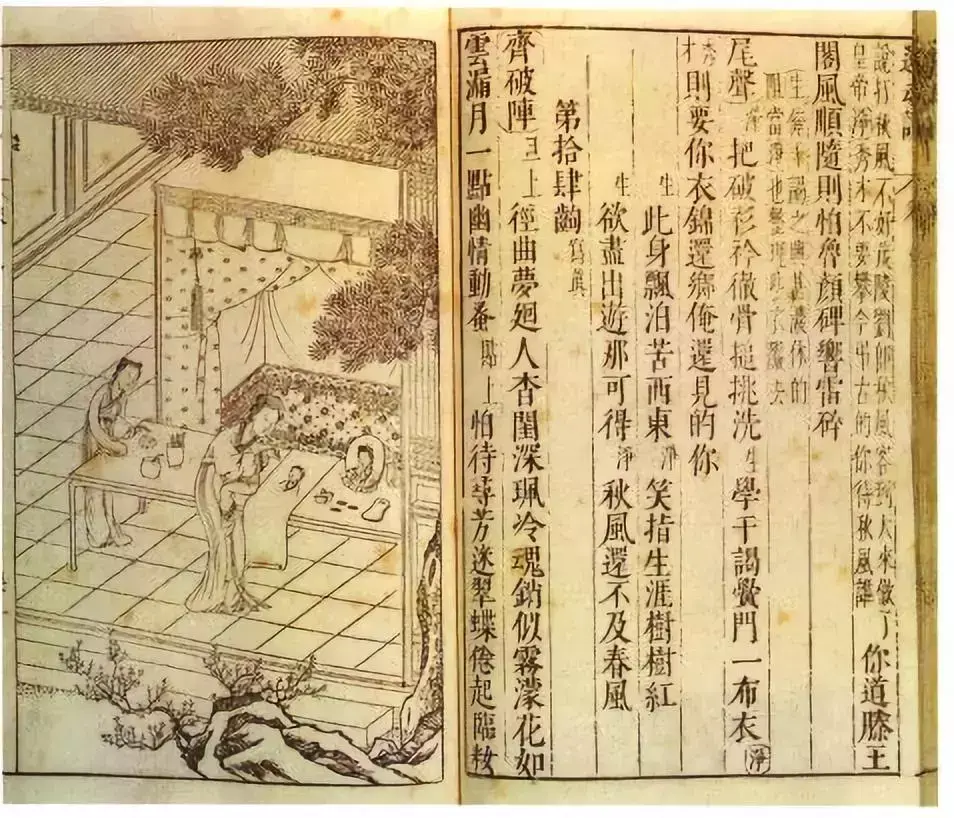 說打秋風不好茂陵劉郎秋風客到大來做了
皇帝淨秀才不要攀今弔古的你待秋風誰
你道滕王
閣風順隨則怕魯顏碑響雷碎
生俺干謁之興甚濃休的
阻當淨也整理些衣服去
尾聲 淨 把破衫衿徹骨搥挑洗 生 學干謁黌門一布衣 淨
秀才則要你衣錦還鄉俺還見的你
生 此身飄泊苦西東 淨 笑指生涯樹樹紅
生 欲盡出遊那可得 淨 秋風還不及春風
第拾肆齣 寫真
齊破陣 旦上 徑曲夢廻人杳閨深珮冷魂銷似霧濛花如
雲漏月一點幽情動蚤 貼上 怕待尋芳迷翠蝶倦起臨妝